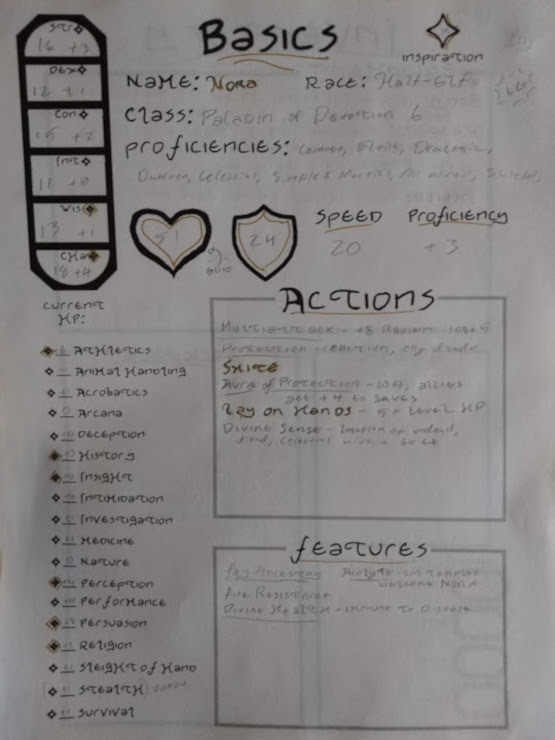 Str
16 +3
Dex
12 +1
Con
15 +2
Int
11 +0
Wis
13 +1
Cha
18 +4
Basics
inspiration
Name: Nora
Race: Half-Elf
Class: Paladin of Devotion 6
Proficiencies: Common, Elvish, Draconic,
Celestial, Simple & Martial, All armor, Shields
51
24
Speed
20
Proficiency
+3
current
HP:
Athletics
Animal Handling
Acrobatics
Arcana
Deception
History
Insight
Intimidation
Investigation
Medicine
Nature
Perception
Performance
Persuasion
Religion
Sleight of Hand
Stealth
Survival
Actions
Multiattack - +8 Radiant
Protection - reaction,
Smite
Aura of Protection - 10ft, allies
get +4 to saves
Lay on Hands - 5 x level HP
Divine Sense - location of undead,
fiend, celestial within 60 ft
Features
Fey Ancestry
Acolyte -
welcome Nora
Fire Resistance
Divine Health - immune to Disease